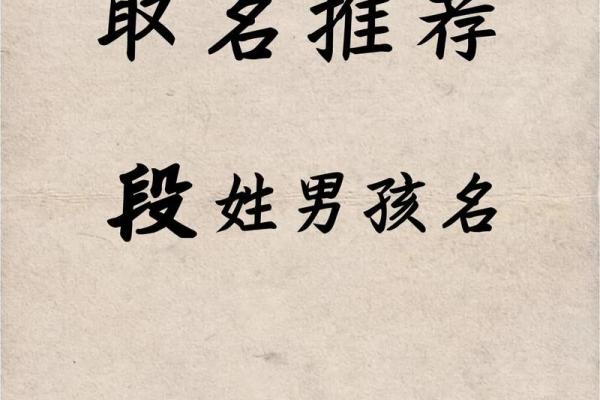 取名推荐
段姓男孩名